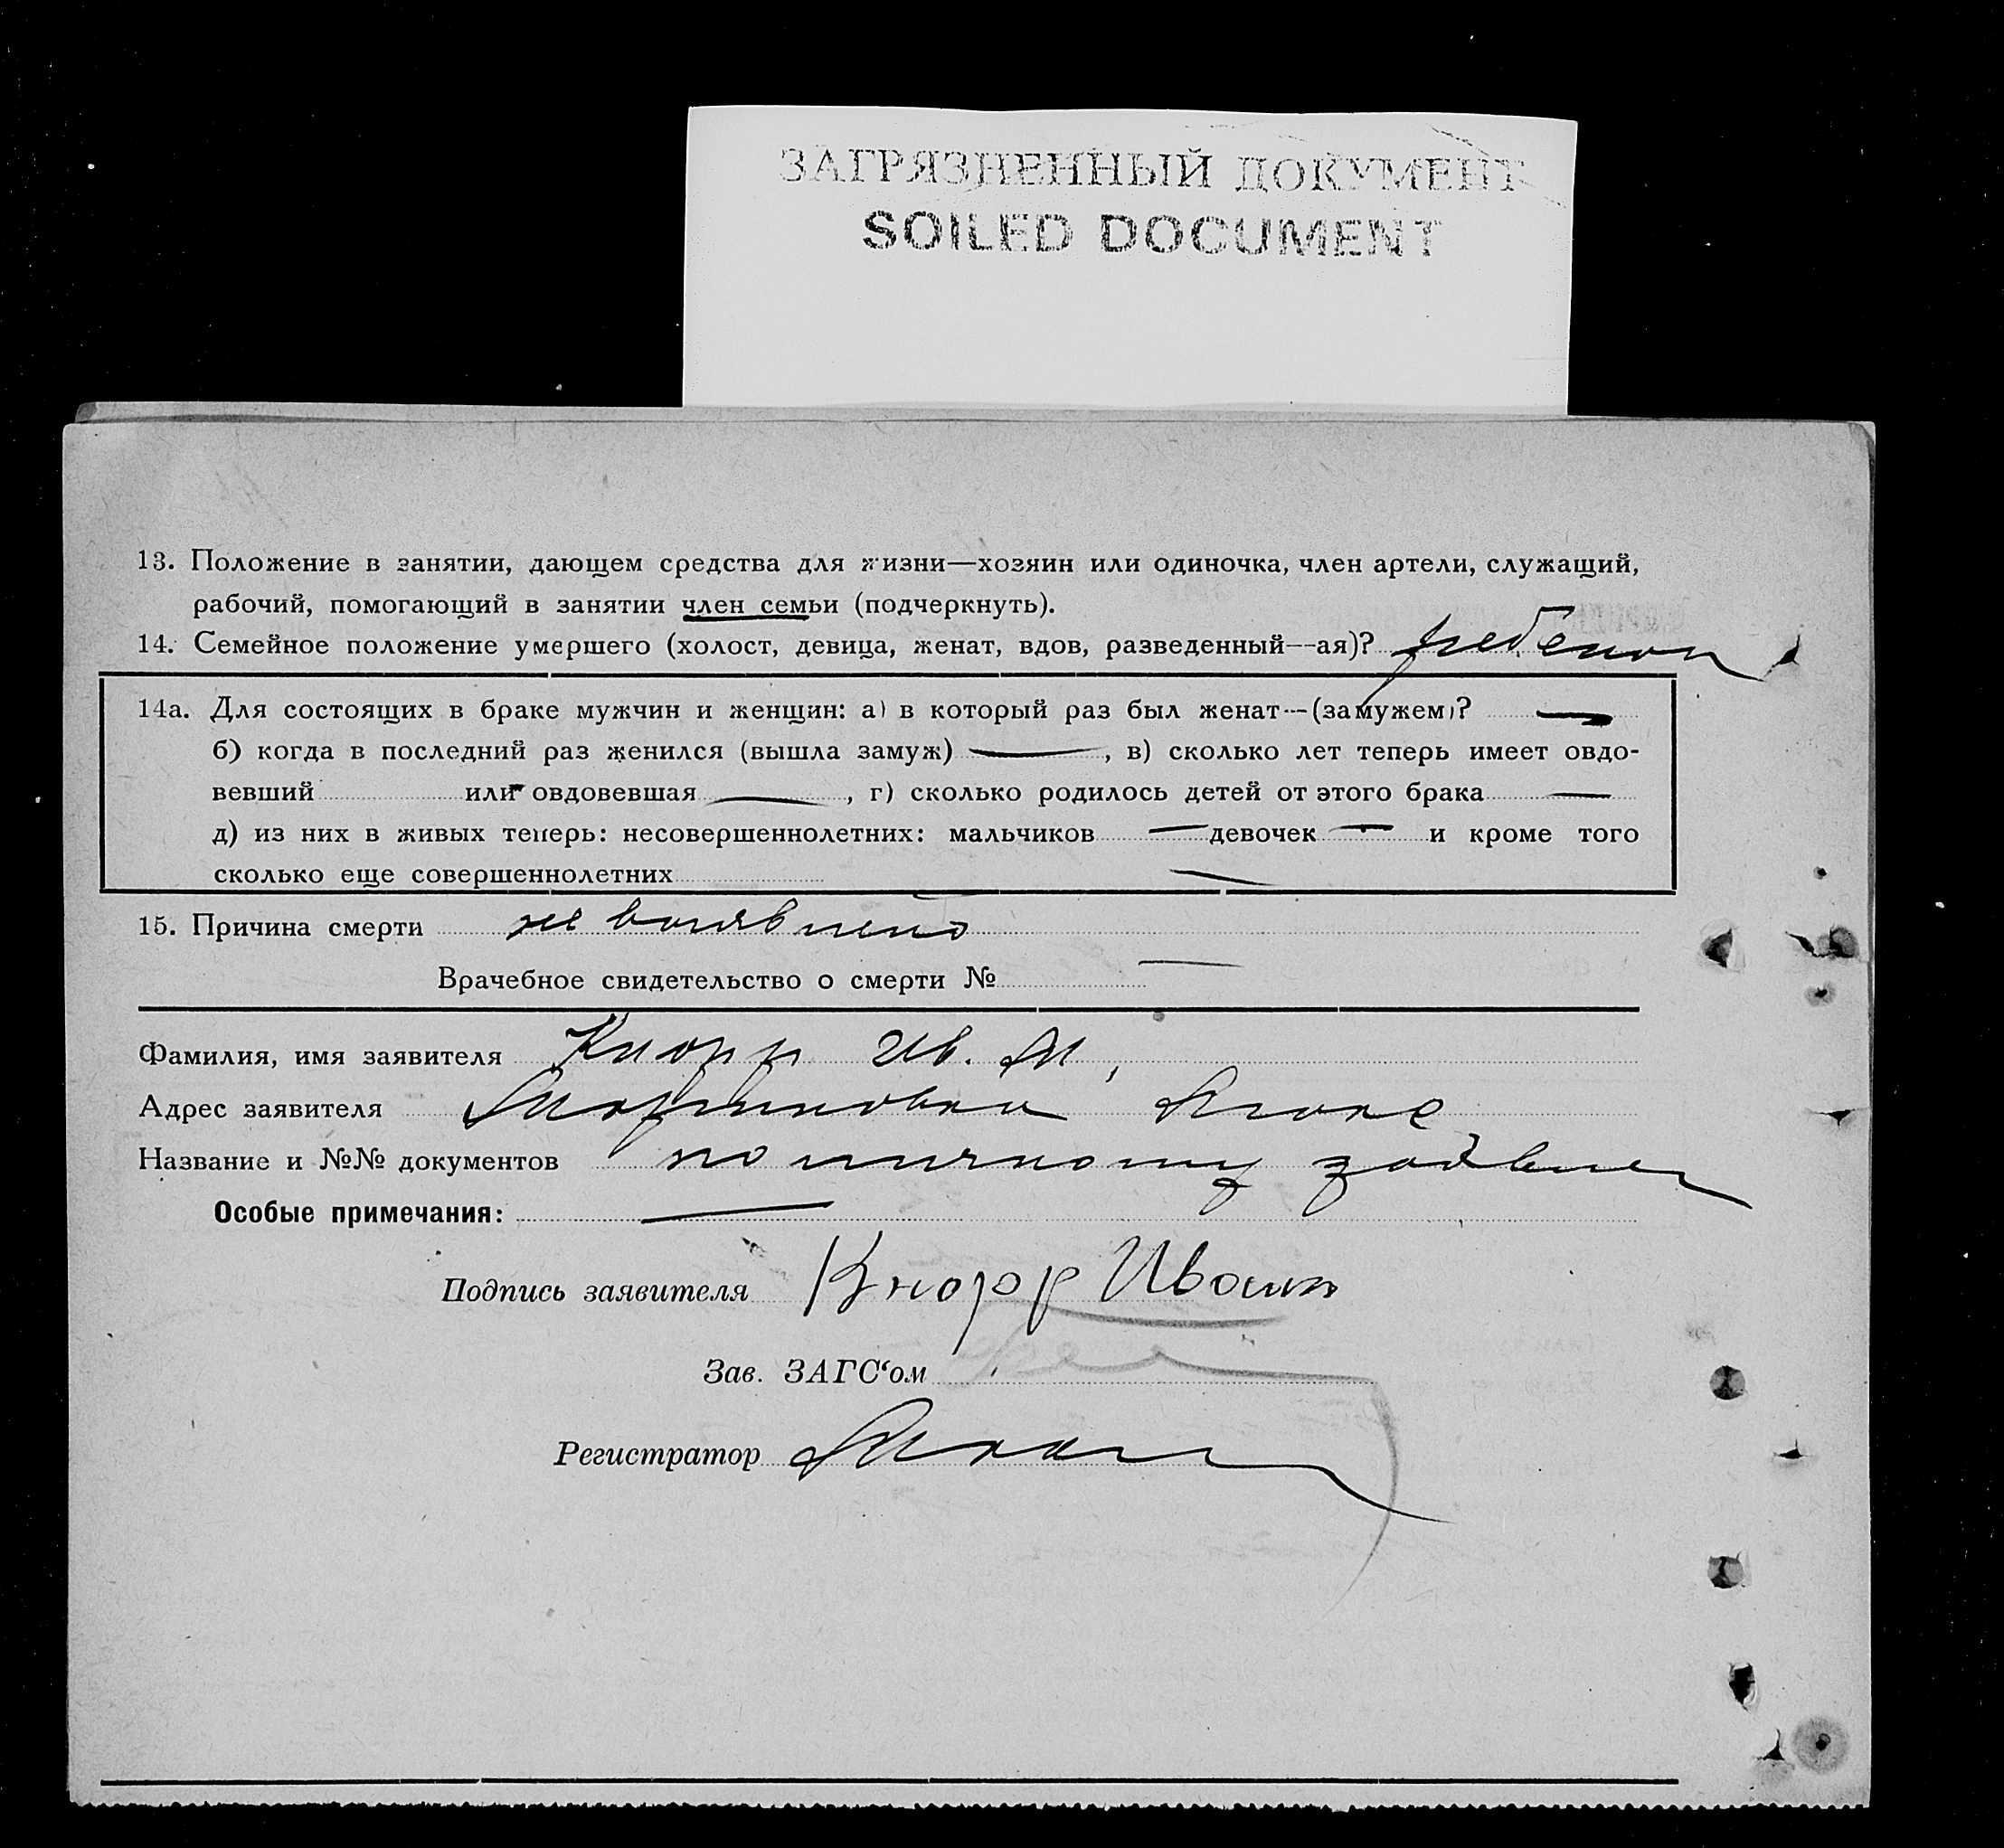 ЗАГРЯЗНЕННЫЙ ДОКУМЕНТ
SOILED DOCUMENT
13. Положение в занятии, дающем средства для жизни—хозяин или одиночка, член артели, служащий,
рабочий, помогающий в занятии член семьи (подчеркнуть).
14. Семейное положение умершего (холост, девица, женат, вдов, разведенный—ая)? ребенок
14а. Для состоящих в браке мужчин и женщин: а) в который раз был женат—(замужем)? —
б) когда в последний раз женился (вышла замуж) —, в) сколько лет теперь имеет овдо-
вевший или овдовевшая —, г) сколько родилось детей от этого брака —
д) из них в живых теперь: несовершеннолетних: мальчиков — девочек — и кроме того
сколько еще совершеннолетних —
15. Причина смерти не выявлено
Врачебное свидетельство о смерти № —
Фамилия, имя заявителя Кнорр Ив. М.
Адрес заявителя
Название и №№ документов по личному заявлен
Особые примечания: —
Подпись заявителя Кнорр Иван
Зав. ЗАГС‘ом
Регистратор